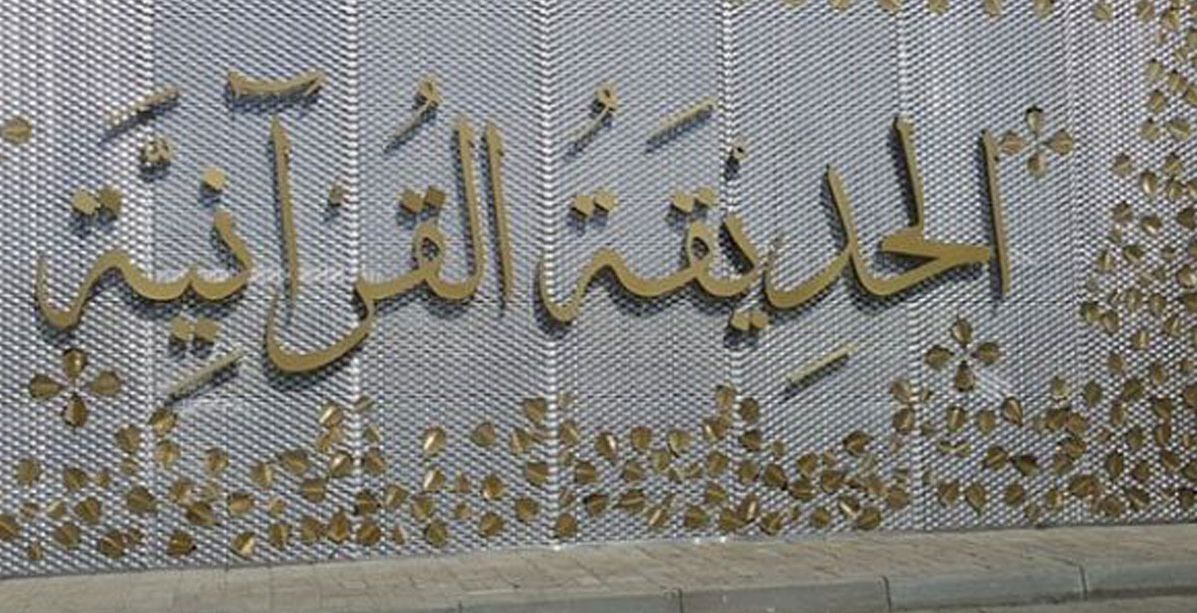 الحَدِيقَةُ القُرآنِيَّة